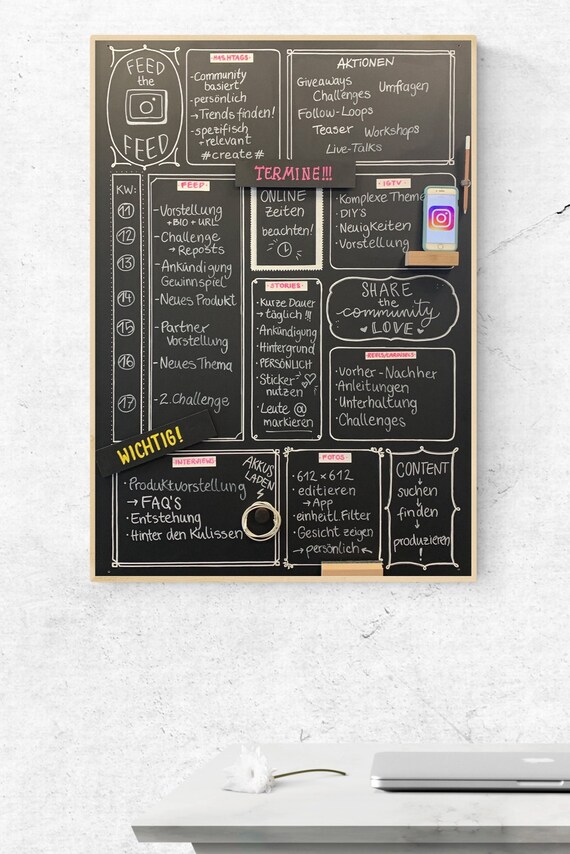 FEED
the
FEED
HASHTAGS
-Community
basiert
-persönlich
→Trends finden!
-spezifisch
+relevant
#create#
AKTIONEN
Giveaways
Umfragen
Challenges
Follow-Loops
Teaser
Workshops
Live-Talks
TERMINE!!!
KW:
11
12
13
14
15
16
17
FEED
-Vorstellung
+BIO+URL
-Challenge
→Reposts
-Ankündigung
Gewinnspiel
-Neues Produkt
-Partner
Vorstellung
-Neues Thema
-2.Challenge
ONLINE
Zeiten
beachten!
IGTV
·Komplexe Theme
·DIY'S
·Neuigkeiten
·Vorstellung
STORIES
·Kurze Dauer
→täglich!!!
·Ankündigung
·Hintergrund
·PERSÖNLICH
·Sticker
nutzen
·Leute @
markieren
SHARE
the
community
LOVE
·Vorher-Nachher
·Anleitungen
·Unterhaltung
·Challenges
WICHTIG!
INTERVIEWS
·Produktvorstellung
→FAQ'S
·Entstehung
·Hinter den Kulissen
AKKUS
LADEN
FOTOS
·612×612
·editieren
→App
·einheitl. Filter
·Gesicht zeigen
→persönlich←
CONTENT
suchen
finden
produzieren
!